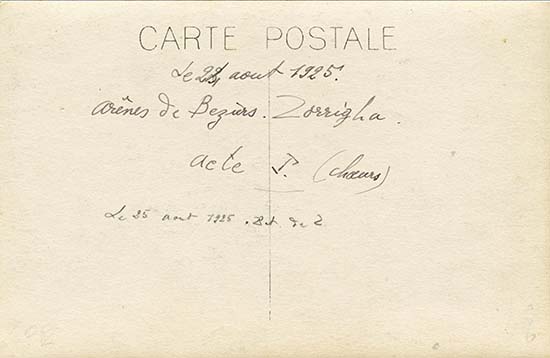 CARTE POSTALE
Le 23 aout 1925.
Arênes de Bezièrs. Zorrigha.
acte I. (Chœurs)
Le 25 aout 1925. de Z